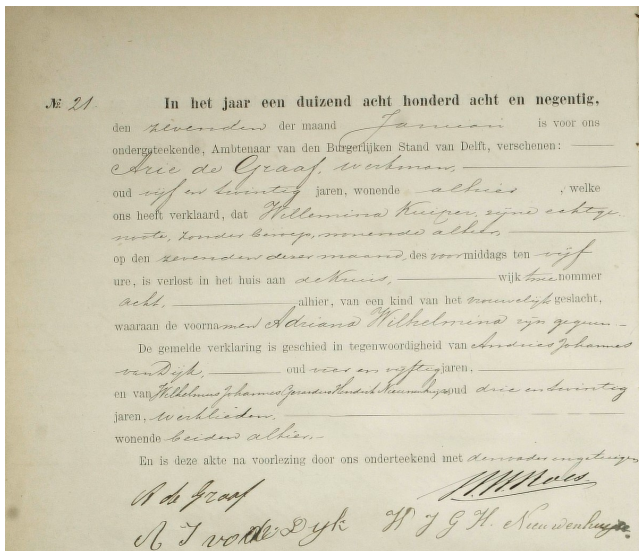 № 21 In het jaar een duizend acht honderd acht en negentig,
den zevenden der maand Januari is voor ons
ondergeteekende, Ambtenaar van den Burgerlijken Stand van Delft, verschenen:
Arie de Graaf, werkman,
oud vijf en twintig jaren, wonende alhier, welke
ons heeft verklaard, dat Willemina Kuiper, zijne echtge-
noote, zonder beroep, wonende alhier,
op den zevenden dezer maand, des voormiddags ten vijf
ure, is verlost in het huis aan wijk twee nommer
acht, alhier, van een kind van het vrouwelijk geslacht,
waaraan de voornamen Adriana Wilhelmina zijn gegeven
De gemelde verklaring is geschied in tegenwoordigheid van Andries Johannes
van Dijk, oud vier en vijftig jaren,
en van Wilhelmus Johannes Gerardus Hendrik Nieuwenhuyse oud drie en twintig
jaren, werklieden
wonende beiden alhier.
En is deze akte na voorlezing door ons onderteekend met den vader en getuigen
A de Graaf
A J van Dyk W J G H. Nieuwenhuyse.